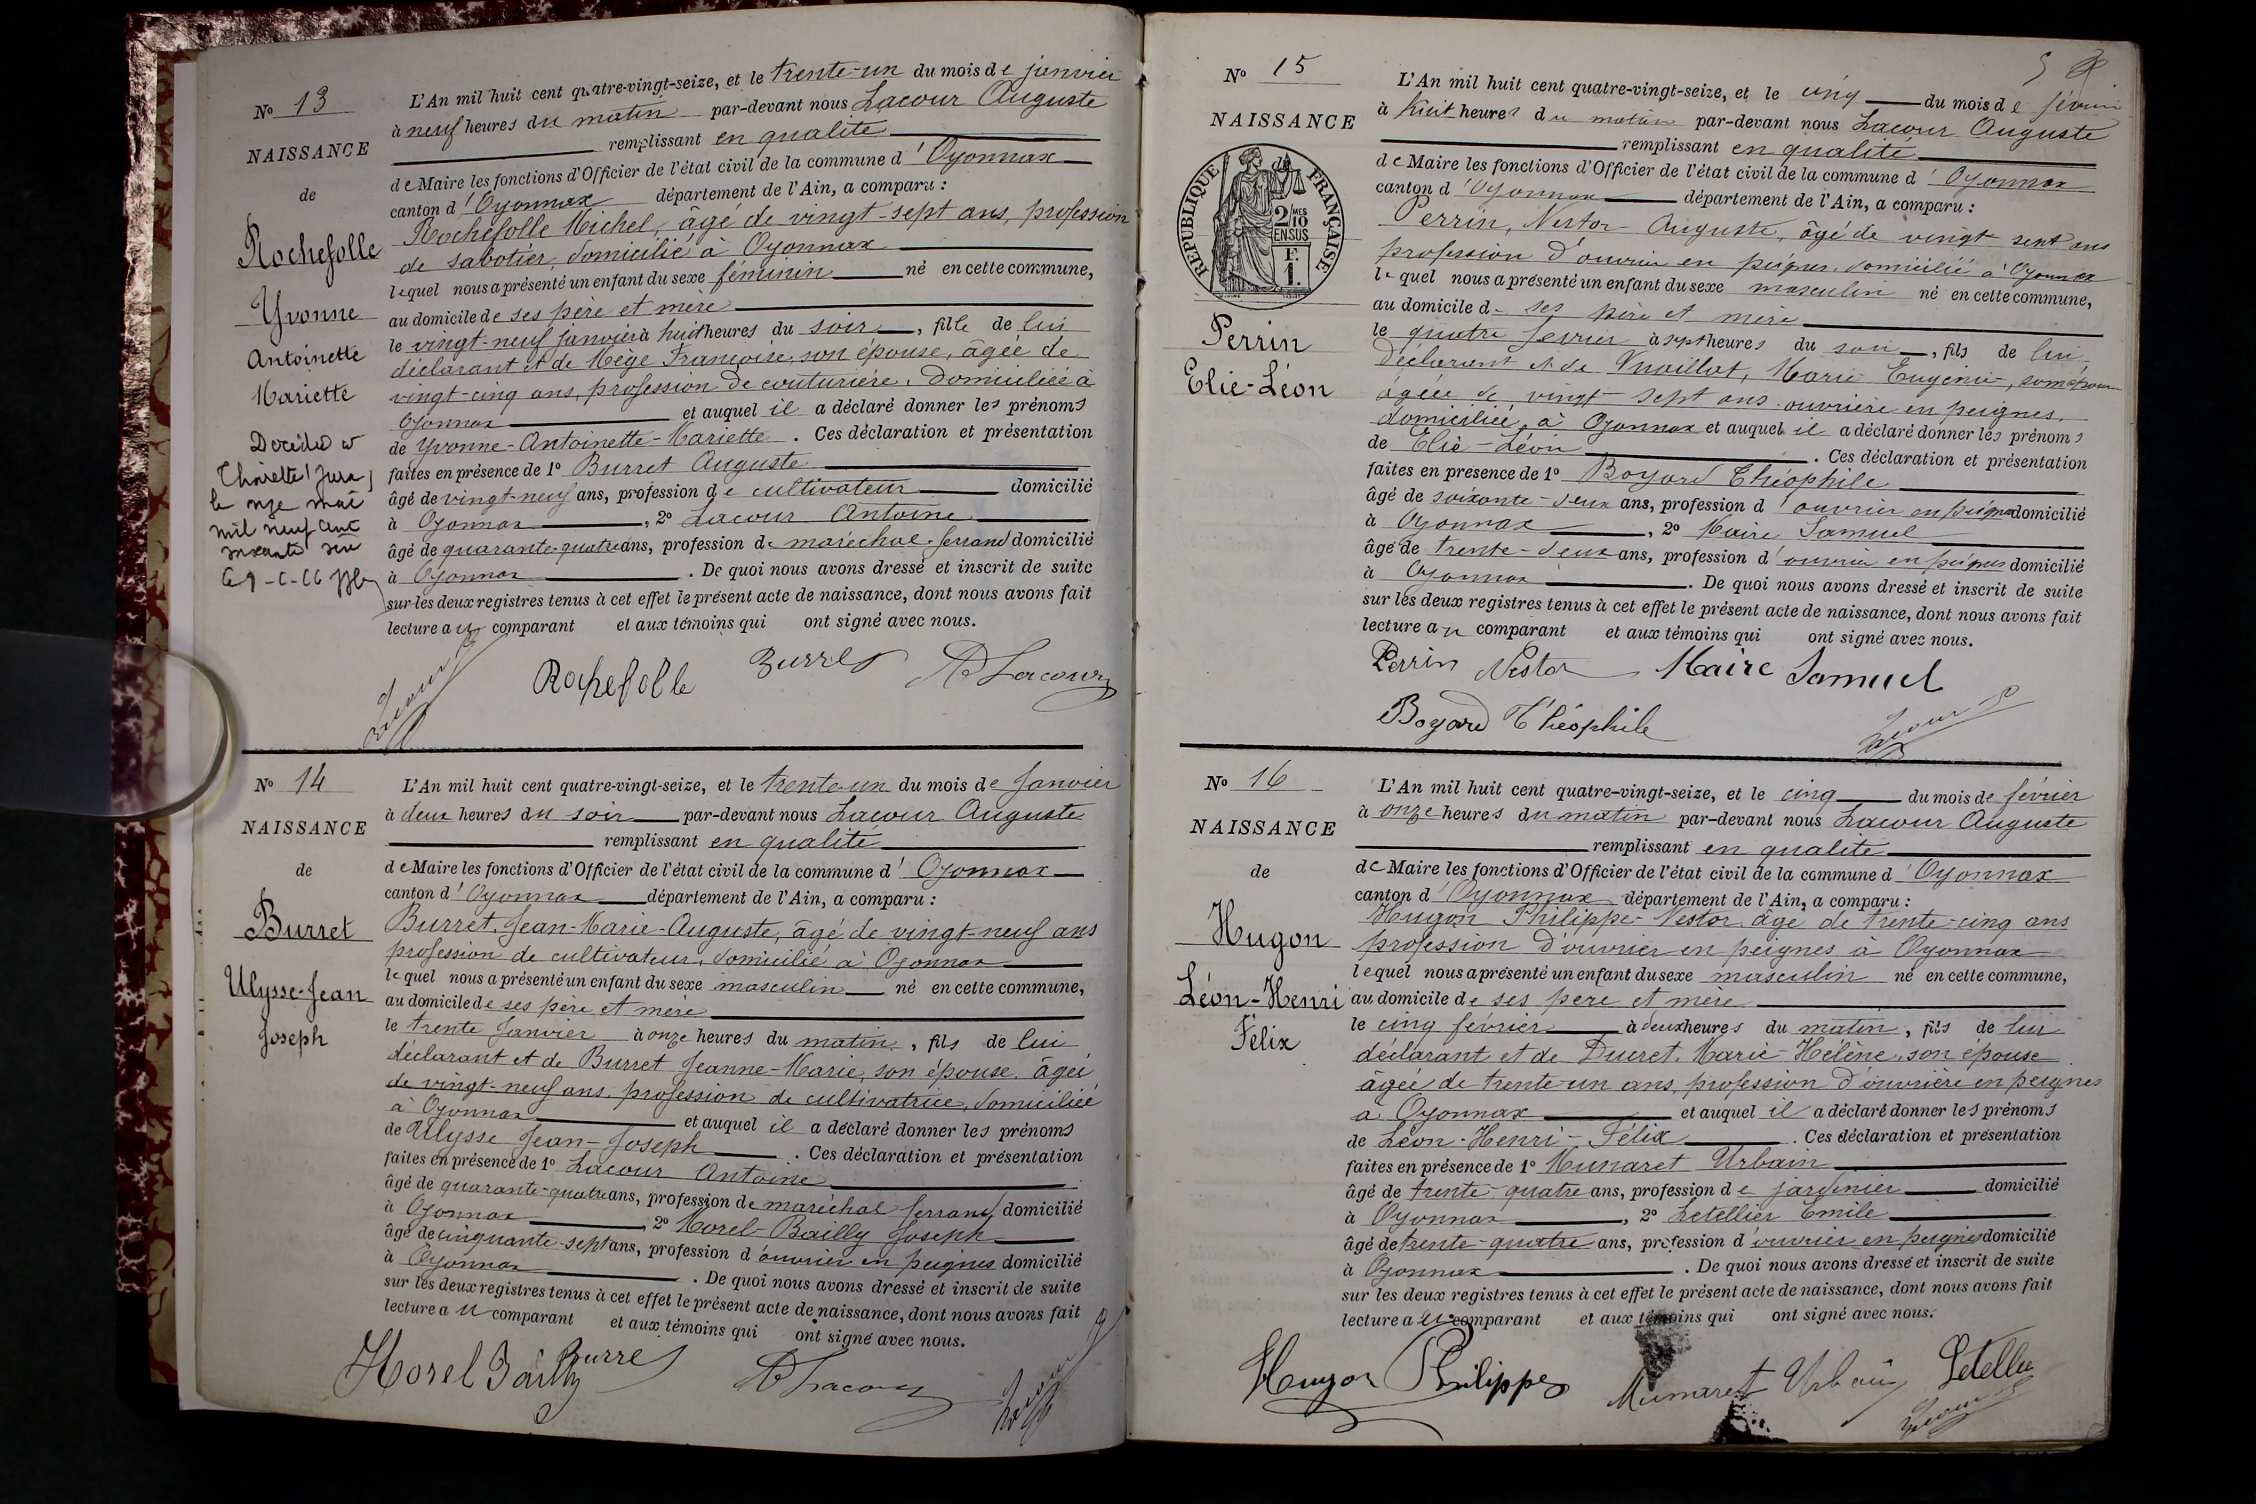 No 13
NAISSANCE
de
Rochefolle
Yvonne
Antoinette
Mariette
Décédée à
le onze mai
mil neuf cent
L'An mil huit cent quatre-vingt-seize, et le trente-un du mois de janvier
à neuf heures du matin par-devant nous Lacour Auguste
remplissant en qualité
de Maire les fonctions d'Officier de l'état civil de la commune d'Oyonnax
canton d'Oyonnax département de l'Ain, a comparu :
Rochefolle Michel, âgé de vingt-sept ans, profession
de sabotier, domicilié à Oyonnax
lequel nous a présenté un enfant du sexe féminin né en cette commune,
au domicile de ses père et mère
le vingt-neuf janvier à huit heures du soir, fille de lui
déclarant et de Mège Françoise, son épouse, âgée de
vingt-cinq ans, profession de couturière, domiciliée à
Oyonnax et auquel il a déclaré donner les prénoms
de Yvonne-Antoinette-Mariette. Ces déclaration et présentation
faites en présence de 1° Burret Auguste
âgé de vingt-neuf ans, profession de cultivateur domicilié
à Oyonnax, 2° Lacour Antoine
âgé de quarante-quatre ans, profession de maréchal-ferrand domicilié
à Oyonnax. De quoi nous avons dressé et inscrit de suite
sur les deux registres tenus à cet effet le présent acte de naissance, dont nous avons fait
lecture au comparant et aux témoins qui ont signé avec nous.
Rochefolle Burret A Lacour
Lacour
No 14
NAISSANCE
de
Burret
Ulysse-Jean
Joseph
L'An mil huit cent quatre-vingt-seize, et le trente-un du mois de Janvier
à deux heures du soir par-devant nous Lacour Auguste
remplissant en qualité
de Maire les fonctions d'Officier de l'état civil de la commune d'Oyonnax
canton d'Oyonnax département de l'Ain, a comparu :
Burret, Jean-Marie-Auguste, âgé de vingt-neuf ans
profession de cultivateur, domicilié à Oyonnax
lequel nous a présenté un enfant du sexe masculin né en cette commune,
au domicile de ses père et mère
le trente Janvier à onze heures du matin, fils de lui
déclarant et de Burret Jeanne-Marie, son épouse, âgée
de vingt-neuf ans, profession de cultivatrice, domiciliée
à Oyonnax et auquel il a déclaré donner les prénoms
de Ulysse Jean-Joseph. Ces déclaration et présentation
faites en présence de 1° Lacour Antoine
âgé de quarante-quatre ans, profession de maréchal ferrand domicilié
à Oyonnax, 2° Morel-Bailly Joseph
âgé de cinquante-sept ans, profession d'ouvrier en peignes domicilié
à Oyonnax. De quoi nous avons dressé et inscrit de suite
sur les deux registres tenus à cet effet le présent acte de naissance, dont nous avons fait
lecture au comparant et aux témoins qui ont signé avec nous.
Morel Bailly Burret A Lacour Lacour
5
No 15
NAISSANCE
REPUBLIQUE FRANÇAISE
2/10MES
EN SUS
F.
1.
Perrin
Elie-Léon
L'An mil huit cent quatre-vingt-seize, et le cinq du mois de février
à huit heures du matin par-devant nous Lacour Auguste
remplissant en qualité
de Maire les fonctions d'Officier de l'état civil de la commune d'Oyonnax
canton d'Oyonnax département de l'Ain, a comparu :
Perrin, Nestor-Auguste, âgé de vingt sept ans
profession d'ouvrier en peignes, domicilié à Oyonnax
lequel nous a présenté un enfant du sexe masculin né en cette commune,
au domicile de ses père et mère
le quatre février à sept heures du soir, fils de lui
déclarant et de Vuaillat, Marie Eugénie, son épouse
âgée de vingt sept ans ouvrière en peignes,
domiciliée à Oyonnax et auquel il a déclaré donner les prénoms
de Elie-Léon. Ces déclaration et présentation
faites en présence de 1° Boyard Théophile
âgé de soixante-deux ans, profession d'ouvrier en peignes domicilié
à Oyonnax, 2° Maire Samuel
âgé de trente-deux ans, profession d'ouvrier en peignes domicilié
à Oyonnax. De quoi nous avons dressé et inscrit de suite
sur les deux registres tenus à cet effet le présent acte de naissance, dont nous avons fait
lecture au comparant et aux témoins qui ont signé avec nous.
Perrin Nestor Maire Samuel
Boyard Théophile Lacour
No 16
NAISSANCE
de
Hugon
Léon-Henri
Félix
L'An mil huit cent quatre-vingt-seize, et le cinq du mois de février
à onze heures du matin par-devant nous Lacour Auguste
remplissant en qualité
de Maire les fonctions d'Officier de l'état civil de la commune d'Oyonnax
canton d'Oyonnax département de l'Ain, a comparu :
Hugon Philippe-Nestor, âgé de trente-cinq ans
profession d'ouvrier en peignes à Oyonnax
lequel nous a présenté un enfant du sexe masculin né en cette commune,
au domicile de ses père et mère
le cinq février à deux heures du matin, fils de lui
déclarant et de Ducret, Marie-Hélène, son épouse
âgée de trente-un ans, profession d'ouvrière en peignes
à Oyonnax et auquel il a déclaré donner les prénoms
de Léon-Henri-Félix. Ces déclaration et présentation
faites en présence de 1° Munaret Urbain
âgé de trente-quatre ans, profession de jardinier domicilié
à Oyonnax, 2° Letellier Emile
âgé de trente-quatre ans, profession d'ouvrier en peignes domicilié
à Oyonnax. De quoi nous avons dressé et inscrit de suite
sur les deux registres tenus à cet effet le présent acte de naissance, dont nous avons fait
lecture au comparant et aux témoins qui ont signé avec nous.
Hugon Philippe Munaret Urbain Letellier
Lacour